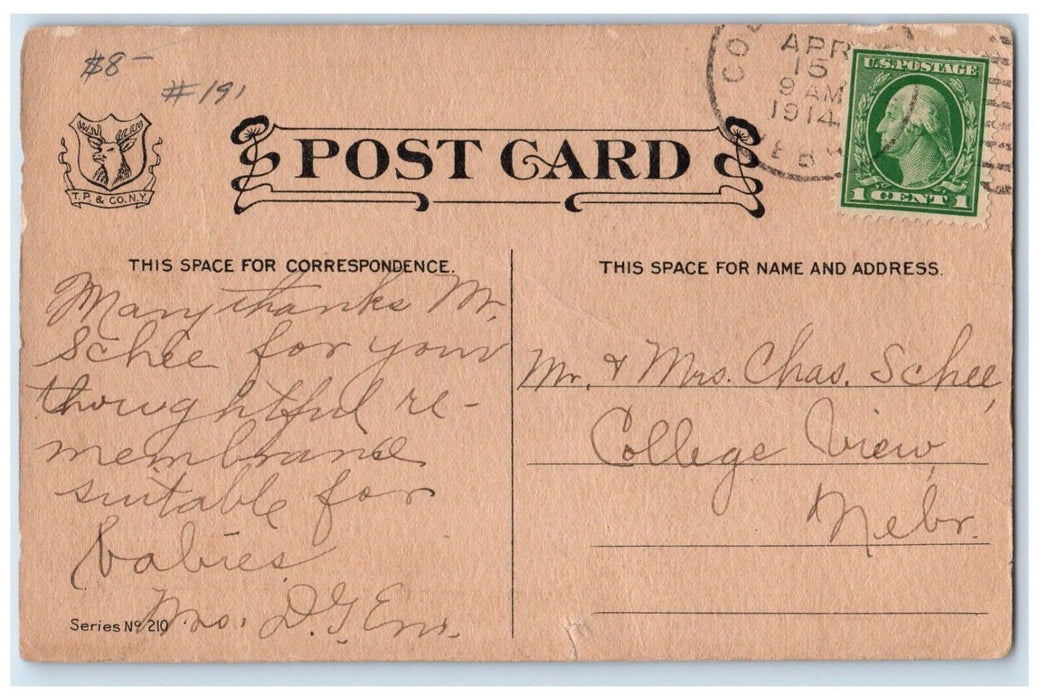 $8-
#191
COL
APR
15
9 AM
1914
U.S. POSTAGE
1 CENT 1
T.P. & CO. N.Y.
POST CARD
THIS SPACE FOR CORRESPONDENCE.
Many thanks Mr.
Schee for your
thoughtful re-
membrance
suitable for
babies
Mrs. D.G.
Series No 210
THIS SPACE FOR NAME AND ADDRESS.
Mr. & Mrs. Chas. Schee,
College View,
Nebr.